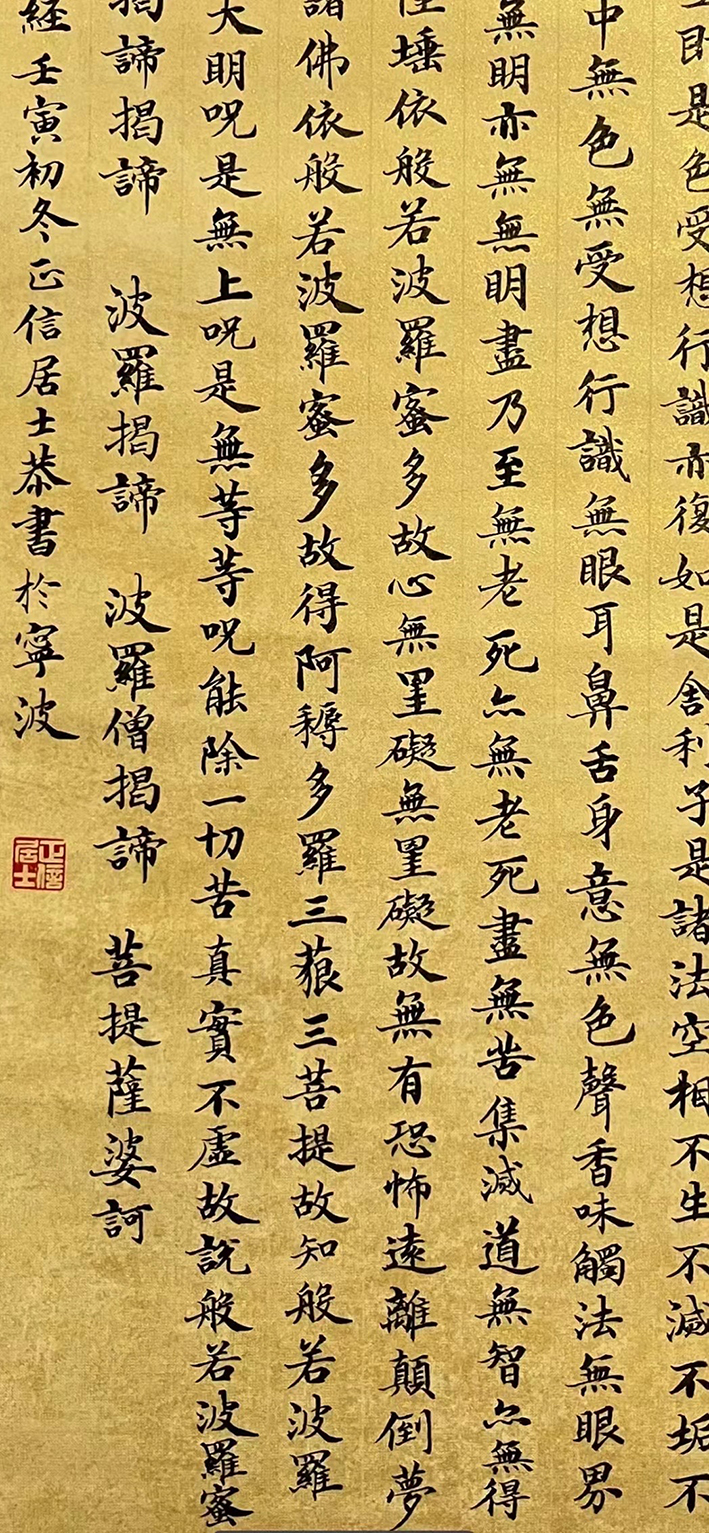 即是色受想行識亦復如是舍利子是諸法空相不生不滅不垢不
中無色無受想行識無眼耳鼻舌身意無色聲香味觸法無眼界
無明亦無無明盡乃至無老死亦無老死盡無苦集滅道無智亦無得
埵依般若波羅蜜多故心無罣礙無罣礙故無有恐怖遠離顛倒夢
諸佛依般若波羅蜜多故得阿耨多羅三藐三菩提故知般若波羅
大明呪是無上呪是無等等呪能除一切苦真實不虛故說般若波羅蜜
揭諦揭諦 波羅揭諦 波羅僧揭諦 菩提薩婆訶
經壬寅初冬正信居士恭書於寧波
正信居士